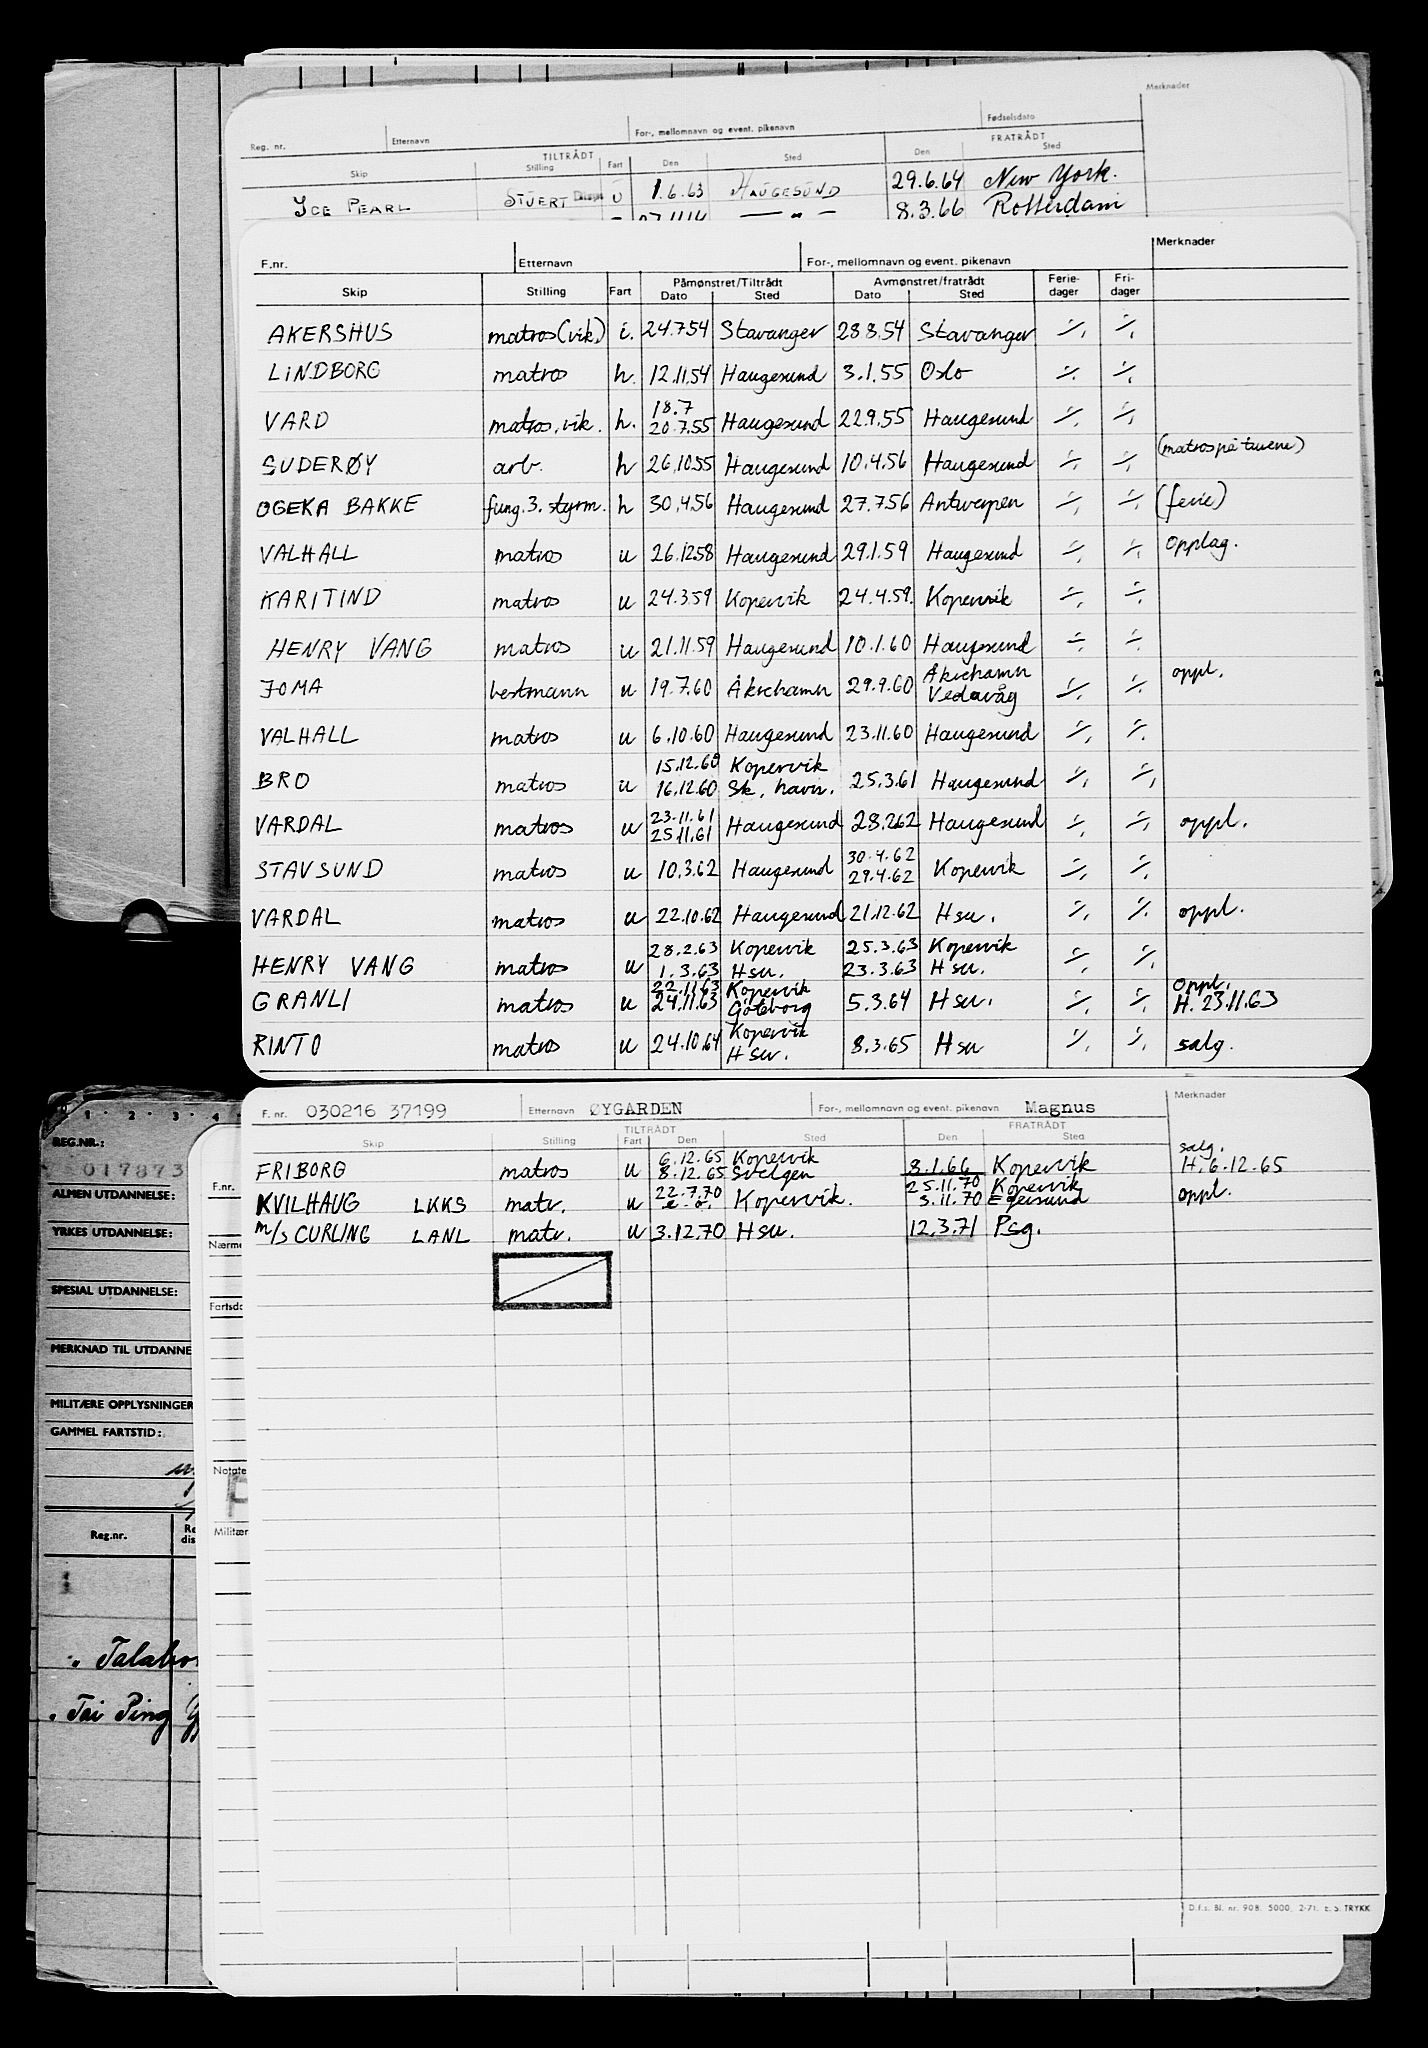 Merknader
Reg. nr. Etternavn For-, mellomnavn og event. pikenavn Fødselsdato
TILTRÅDT FRATRÅDT
Skip Stilling Fart Den Sted Den Sted
ICE PEARL STUERT U 1.6.63 HAUGESUND 29.6.64 New York.
— " — 8.3.66 Rotterdam
F.nr. Etternavn For-, mellomnavn og event. pikenavn Merknader
Skip Stilling Fart Påmønstret/Tiltrådt Avmønstret/fratrådt Ferie-dager Fri-dager
Dato Sted Dato Sted
AKERSHUS matros (vik.) i. 24.7.54 Stavanger 28.8.54 Stavanger -/. -/.
LINDBORG matros h. 12.11.54 Haugesund 3.1.55 Oslo -/. -/.
VARD matros, vik. h. 18.7 20.7.55 Haugesund 22.9.55 Haugesund -/. -/.
SUDERØY arb. h 26.10.55 Haugesund 10.4.56 Haugesund -/. -/. (matros på turene)
OGEKA BAKKE fung. 3. styrm. h 30.4.56 Haugesund 27.7.56 Antwerpen -/. -/. (ferie)
VALHALL matros u 26.12.58 Haugesund 29.1.59 Haugesund -/. -/. Opplag.
KARITIND matros u 24.3.59 Kopervik 24.4.59. Kopervik -/. -/.
HENRY VANG matros u 21.11.59 Haugesund 10.1.60 Haugesund -/. -/.
JOMA bestmann u 19.7.60 Åkrehamn 29.9.60 Åkrehamn Vedavåg -/. -/. oppl.
VALHALL matros u 6.10.60 Haugesund 23.11.60 Haugesund -/. -/.
BRO matros u 15.12.60 16.12.60 Kopervik Sk. havn. 25.3.61 Haugesund -/. -/.
VARDAL matros u 23.11.61 25.11.61 Haugesund 28.2.62 Haugesund -/. -/. oppl.
STAVSUND matros u 10.3.62 Haugesund 30.4.62 29.4.62 Kopervik -/. -/.
VARDAL matros u 22.10.62 Haugesund 21.12.62 Hsu. -/. -/. oppl.
HENRY VANG matros u 28.2.63 1.3.63 Kopervik Hsu. 25.3.63 23.3.63 Kopervik Hsu. -/. -/.
GRANLI matros u 22.11.63 24.11.63 Kopervik Göteborg 5.3.64 Hsu. -/. -/. oppl. H. 23.11.63
RINTO matros u 24.10.64 Kopervik Hsu. 8.3.65 Hsu -/. -/. salg.
F. nr. 030216 37199 Etternavn ØYGARDEN For-, mellomnavn og event. pikenavn Magnus Merknader
TILTRÅDT FRATRÅDT
Skip Stilling Fart Den Sted Den Sted
FRIBORG matros u 6.12.65 8.12.65 Kopervik Svelgen 8.1.66 Kopervik salg. H. 6.12.65
KVILHAUG LKKS matr. u 22.7.70 e. o. Kopervik. 25.11.70 3.11.70 Kopervik Egersund oppl.
m/s CURLING LANL matr. u 3.12.70 Hsu. 12.3.71 Psg.
D.f.s. Bl. nr. 908. 5000. 2-71. E. S. TRYKK
1 2 3 4
REG.NR.:
017873
ALMEN UTDANNELSE:
YRKES UTDANNELSE:
SPESIAL UTDANNELSE:
MERKNAD TIL UTDANNE
MILITÆRE OPPLYSNINGER
GAMMEL FARTSTID:
Reg.nr. Re dis
Tai Ping
F.nr.
Nærme
Fartsdo
Notate
Militær